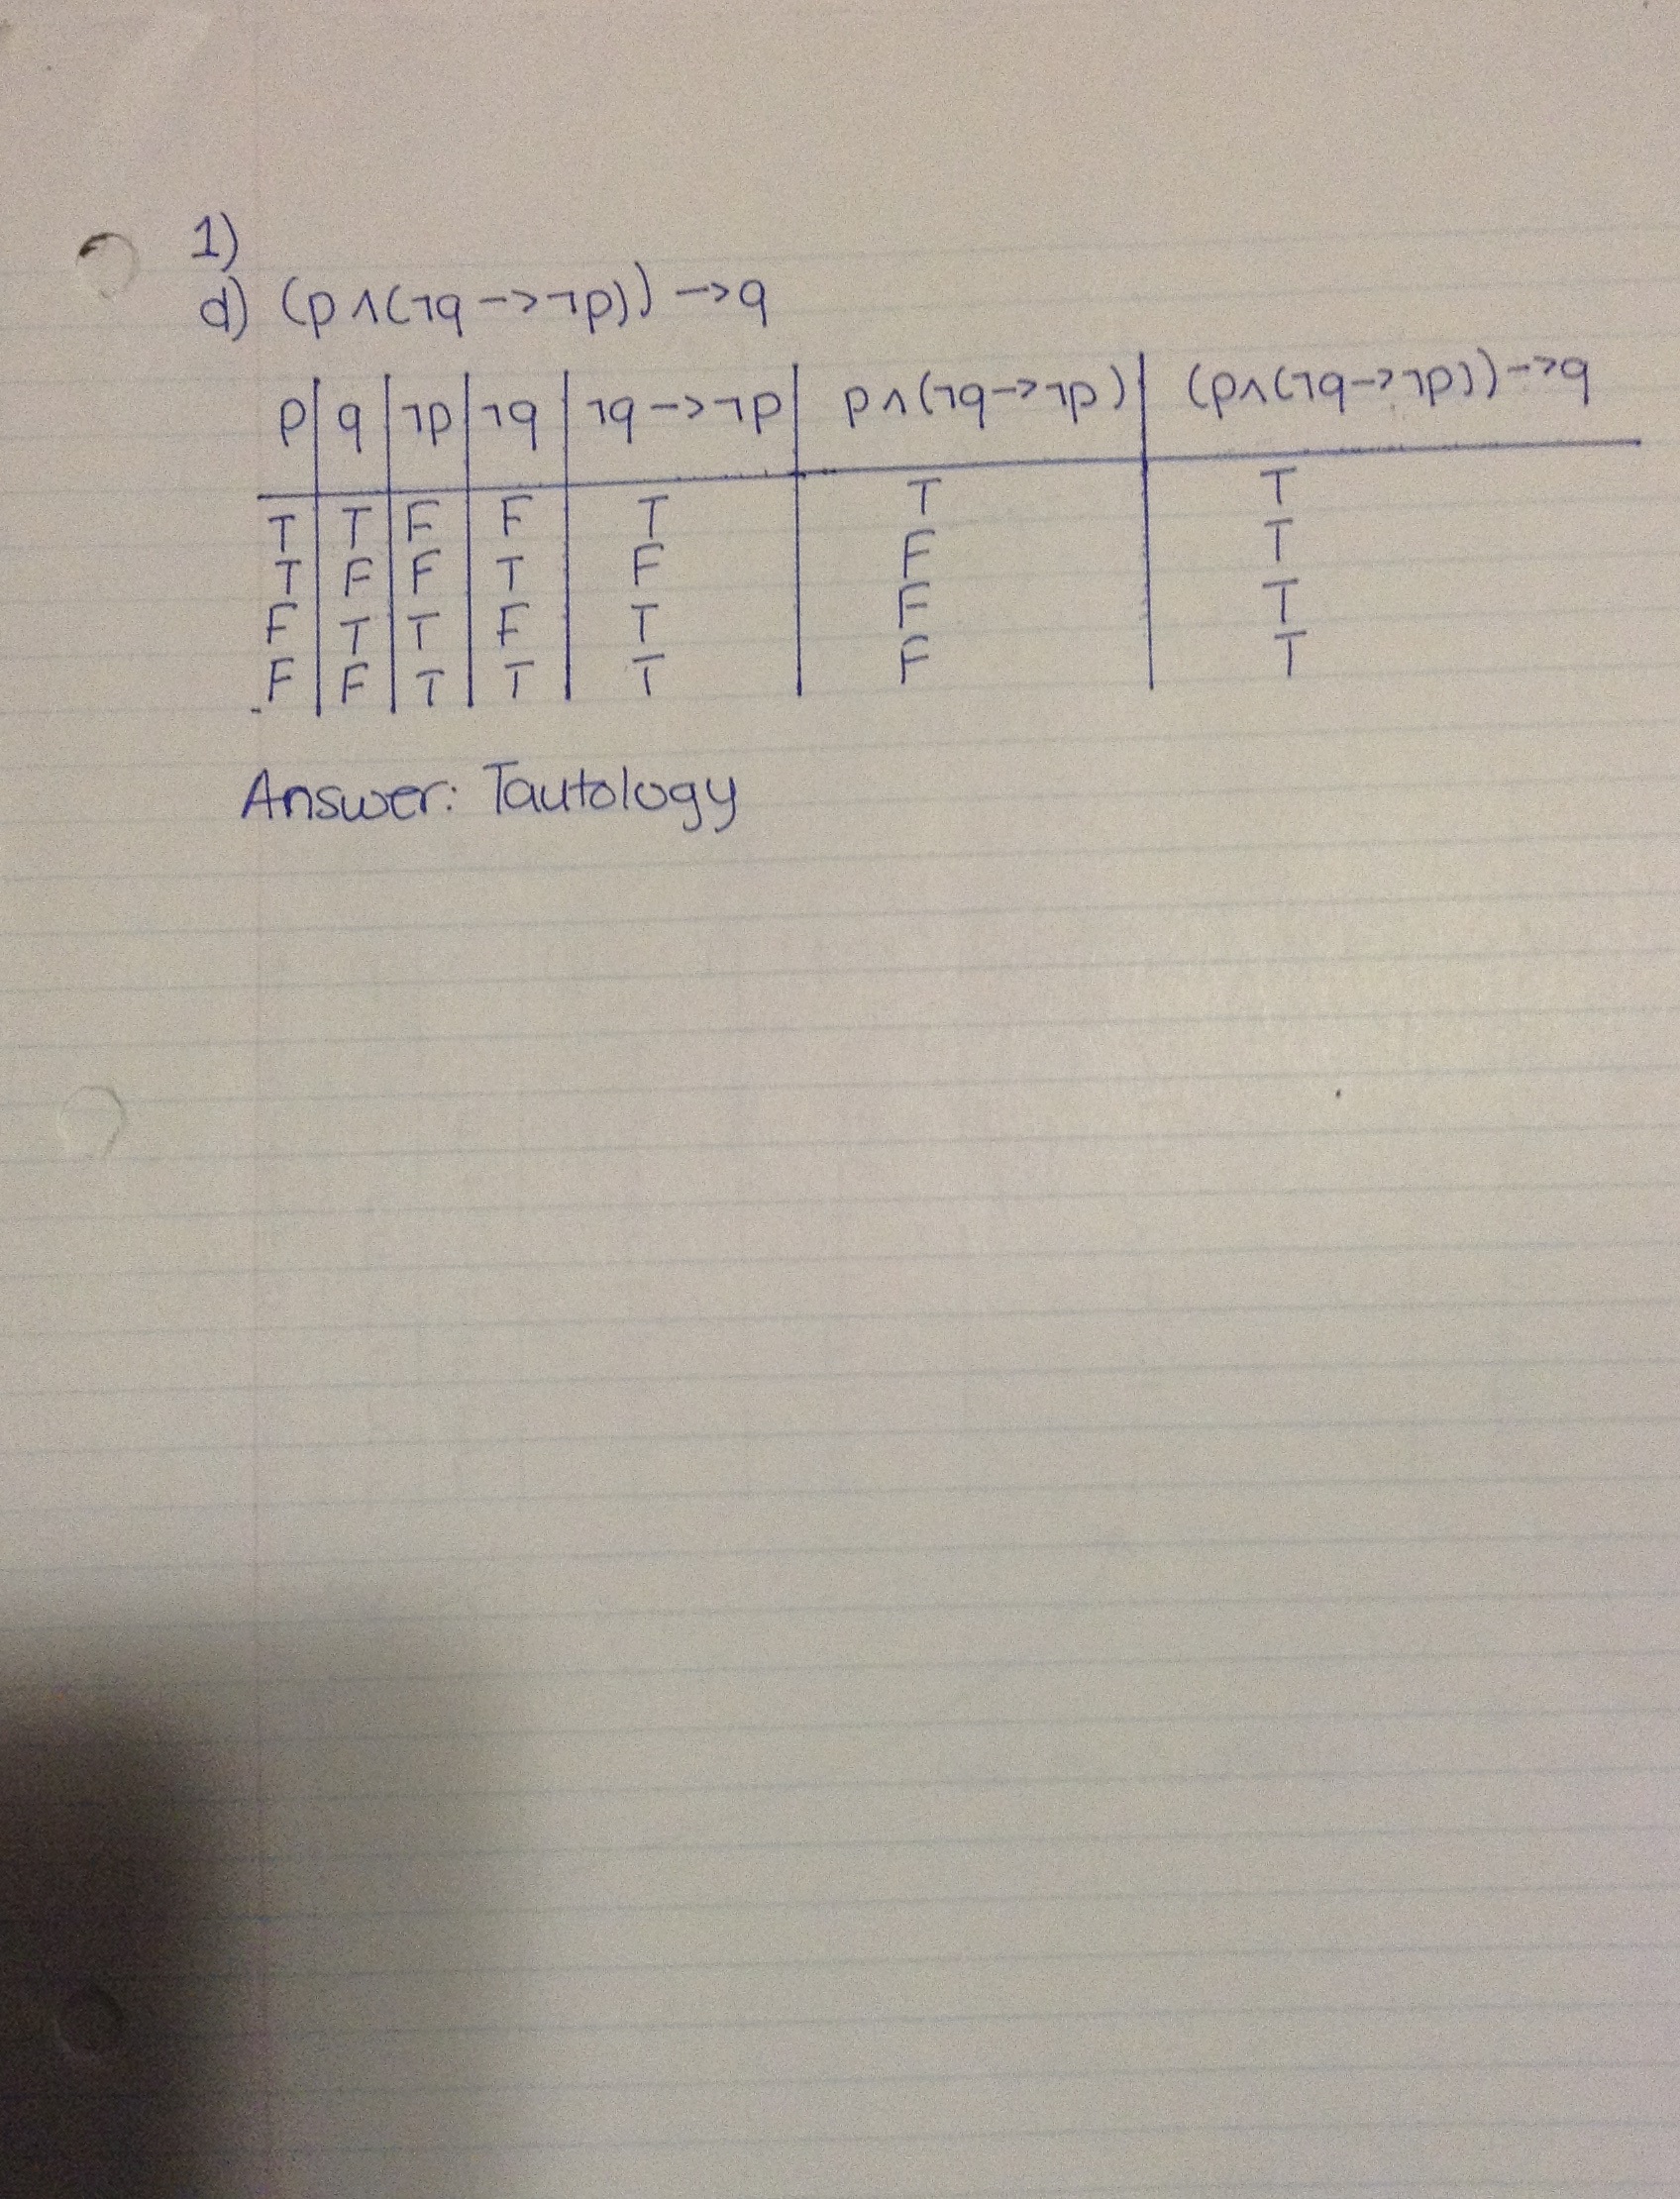 1)
d) (p∧(¬q->¬p))->q
p | q | ¬p | ¬q | ¬q->¬p | p∧(¬q->¬p) | (p∧(¬q->¬p))->q
T | T | F | F | T | T | T
T | F | F | T | F | F | T
F | T | T | F | T | F | T
F | F | T | T | T | F | T
Answer: Tautology